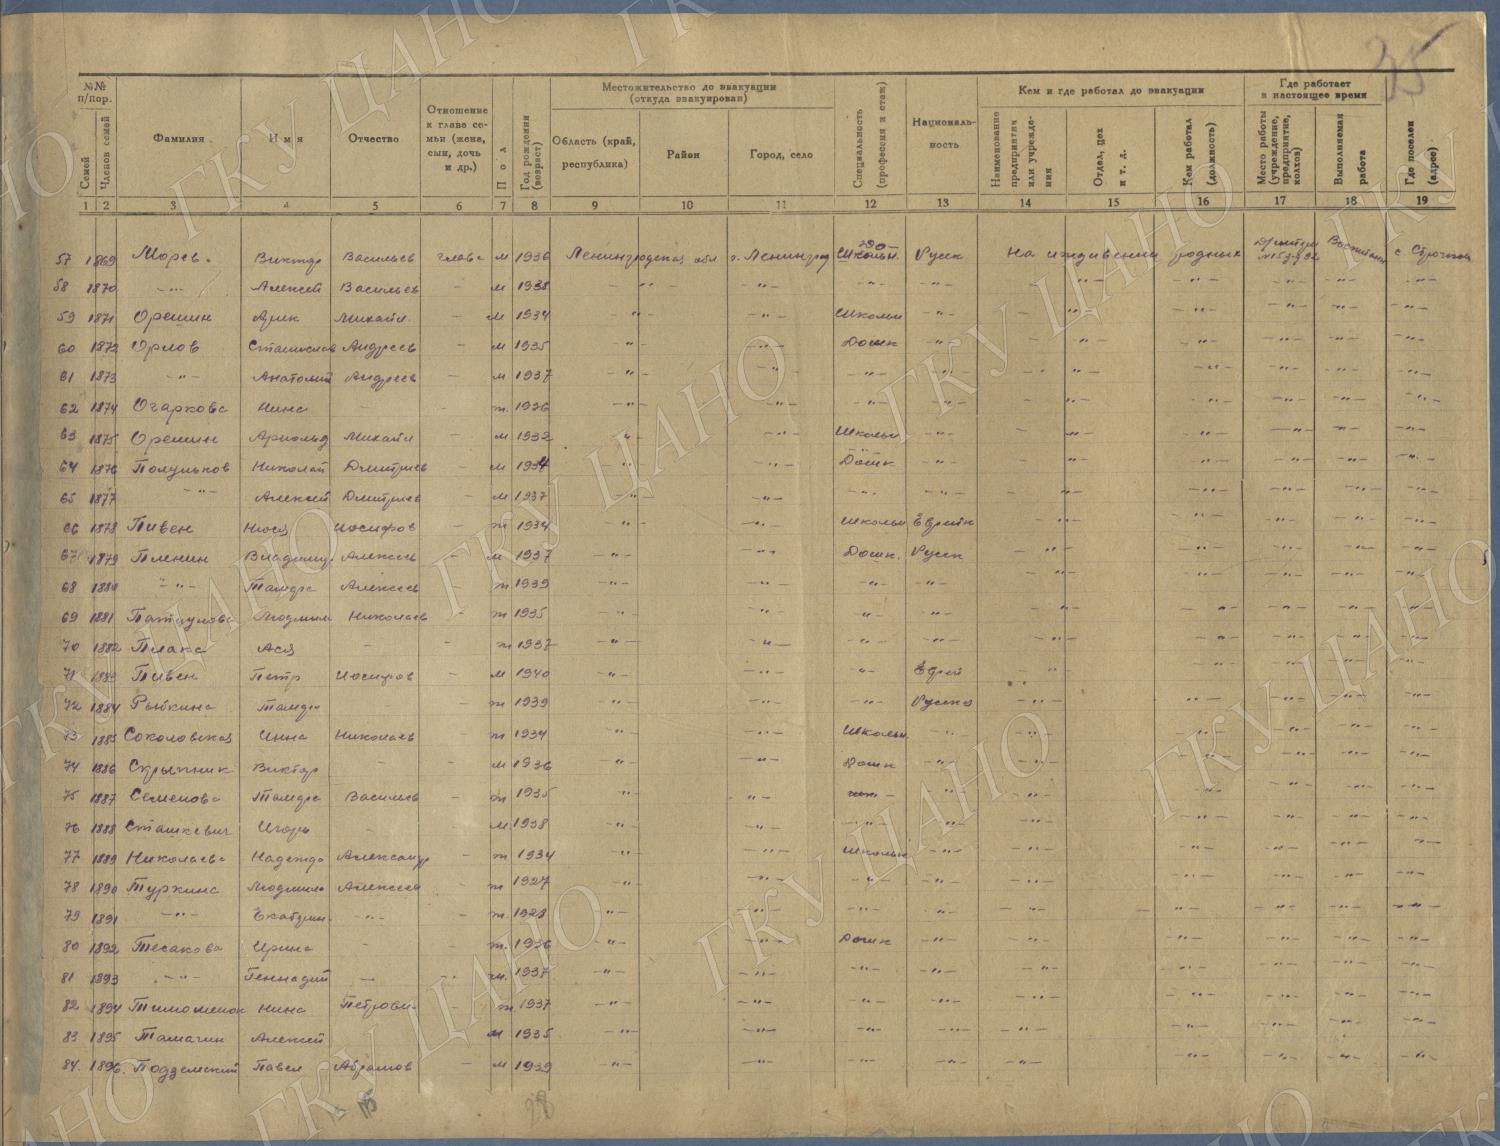 35
№№ п/пор. Фамилия Имя Отчество Отношение к главе семьи (жена, сын, дочь и др.) Пол Год рождения (возраст) Местожительство до эвакуации (откуда эвакуирован) Специальность (профессия и стаж) Националь-ность Кем и где работал до эвакуации Где работает в настоящее время Где поселен (адрес)
Семей Членов семей Область (край, республика) Район Город, село Наименование предприятия или учрежде-ния Отдел, цех и т. д. Кем работал (должность) Место работы (учреждение, предприятие, колхоз) Выполняемая работа
1 2 3 4 5 6 7 8 9 10 11 12 13 14 15 16 17 18 19
57 1869 Морев. Виктор Васильев глава м 1936 Ленинградская обл г. Ленинград До-школьн. Русск На иждивении родных
58 1870 —"— Алексей Васильев – м 1938 —"— —"— —"— —"— —"— —"— —"— —"— —"—
59 1871 Орешин Эрик Михайл. – м 1934 —"— —"— Школьн —"— —"— —"— —"— —"— —"—
60 1872 Орлов Станислав Андреев – м 1935 —"— —"— Дошк —"— —"— —"— —"— —"— —"—
61 1873 —"— Анатолий Андреев – м 1937 —"— —"— —"— —"— —"— —"— —"— —"— —"—
62 1874 Огаркова Нина – – ж. 1936 —"— —"— —"— —"— —"— —"— —"— —"— —"—
63 1875 Орешин Арнольд Михайл – м 1932 —"— —"— Школьн —"— —"— —"— —"— —"— —"—
64 1876 Полуньков Николай Дмитриев – м 1934 —"— —"— Дошк —"— —"— —"— —"— —"— —"—
65 1877 —"— Алексей Дмитриев – м 1937 —"— —"— —"— —"— —"— —"— —"— —"— —"—
66 1878 Пивен Нюся Иосифов – ж 1934 —"— —"— Школьн Еврейк —"— —"— —"— —"— —"—
67 1879 Пленин Владимир Алексеев – м 1937 —"— —"— Дошк. Русск —"— —"— —"— —"— —"—
68 1880 —"— Тамара Алексеев – ж 1939 —"— —"— —"— —"— —"— —"— —"— —"— —"—
69 1881 Людмила Николаев ж 1935 —"— —"— —"— —"— —"— —"— —"— —"— —"—
70 1882 Плакс Ася – – ж 1937 —"— —"— —"— —"— —"— —"— —"— —"— —"—
71 1883 Пивен Петр Иосифов – м 1940 —"— —"— —"— Еврей —"— —"— —"— —"— —"—
72 1884 Рыбкина Тамара – – ж 1939 —"— —"— —"— Русска —"— —"— —"— —"— —"—
73 1885 Соколовская Инна Николаев – ж 1934 —"— —"— Школьн. —"— —"— —"— —"— —"— —"—
74 1886 Скрыпник Виктор – – м 1936 —"— —"— Дошк —"— —"— —"— —"— —"— —"—
75 1887 Семенова Тамара Васильев – ж 1935 —"— —"— —"— —"— —"— —"— —"— —"—
76 1888 Сташкевич Игорь – м 1938 —"— —"— —"— —"— —"— —"— —"— —"— —"—
77 1889 Николаева Надежда Александр – ж 1934 —"— —"— Школьн —"— —"— —"— —"— —"— —"—
78 1890 Туркина Людмила Алексеев – ж 1927 —"— —"— —"— —"— —"— —"— —"— —"— —"—
79 1891 —"— Екатерин. —"— – ж. 1928 —"— —"— —"— —"— —"— —"— —"— —"— —"—
80 1892 Тесакова Ирина – – ж. 1936 —"— —"— Дошк —"— —"— —"— —"— —"— —"—
81 1893 —"— Геннадий — – м. 1937 —"— —"— —"— —"— —"— —"— —"— —"— —"—
82 1894 Нина Петровн. – ж 1937 —"— —"— —"— —"— —"— —"— —"— —"— —"—
83 1895 Томагин Алексей м 1935 —"— —"— —"— —"— —"— —"— —"— —"— —"—
84. 1896. Поддемский Павел Абрамов – м 1939 —"— —"— —"— —"— —"— —"— —"— —"— —"—
ГКУ ЦАНО